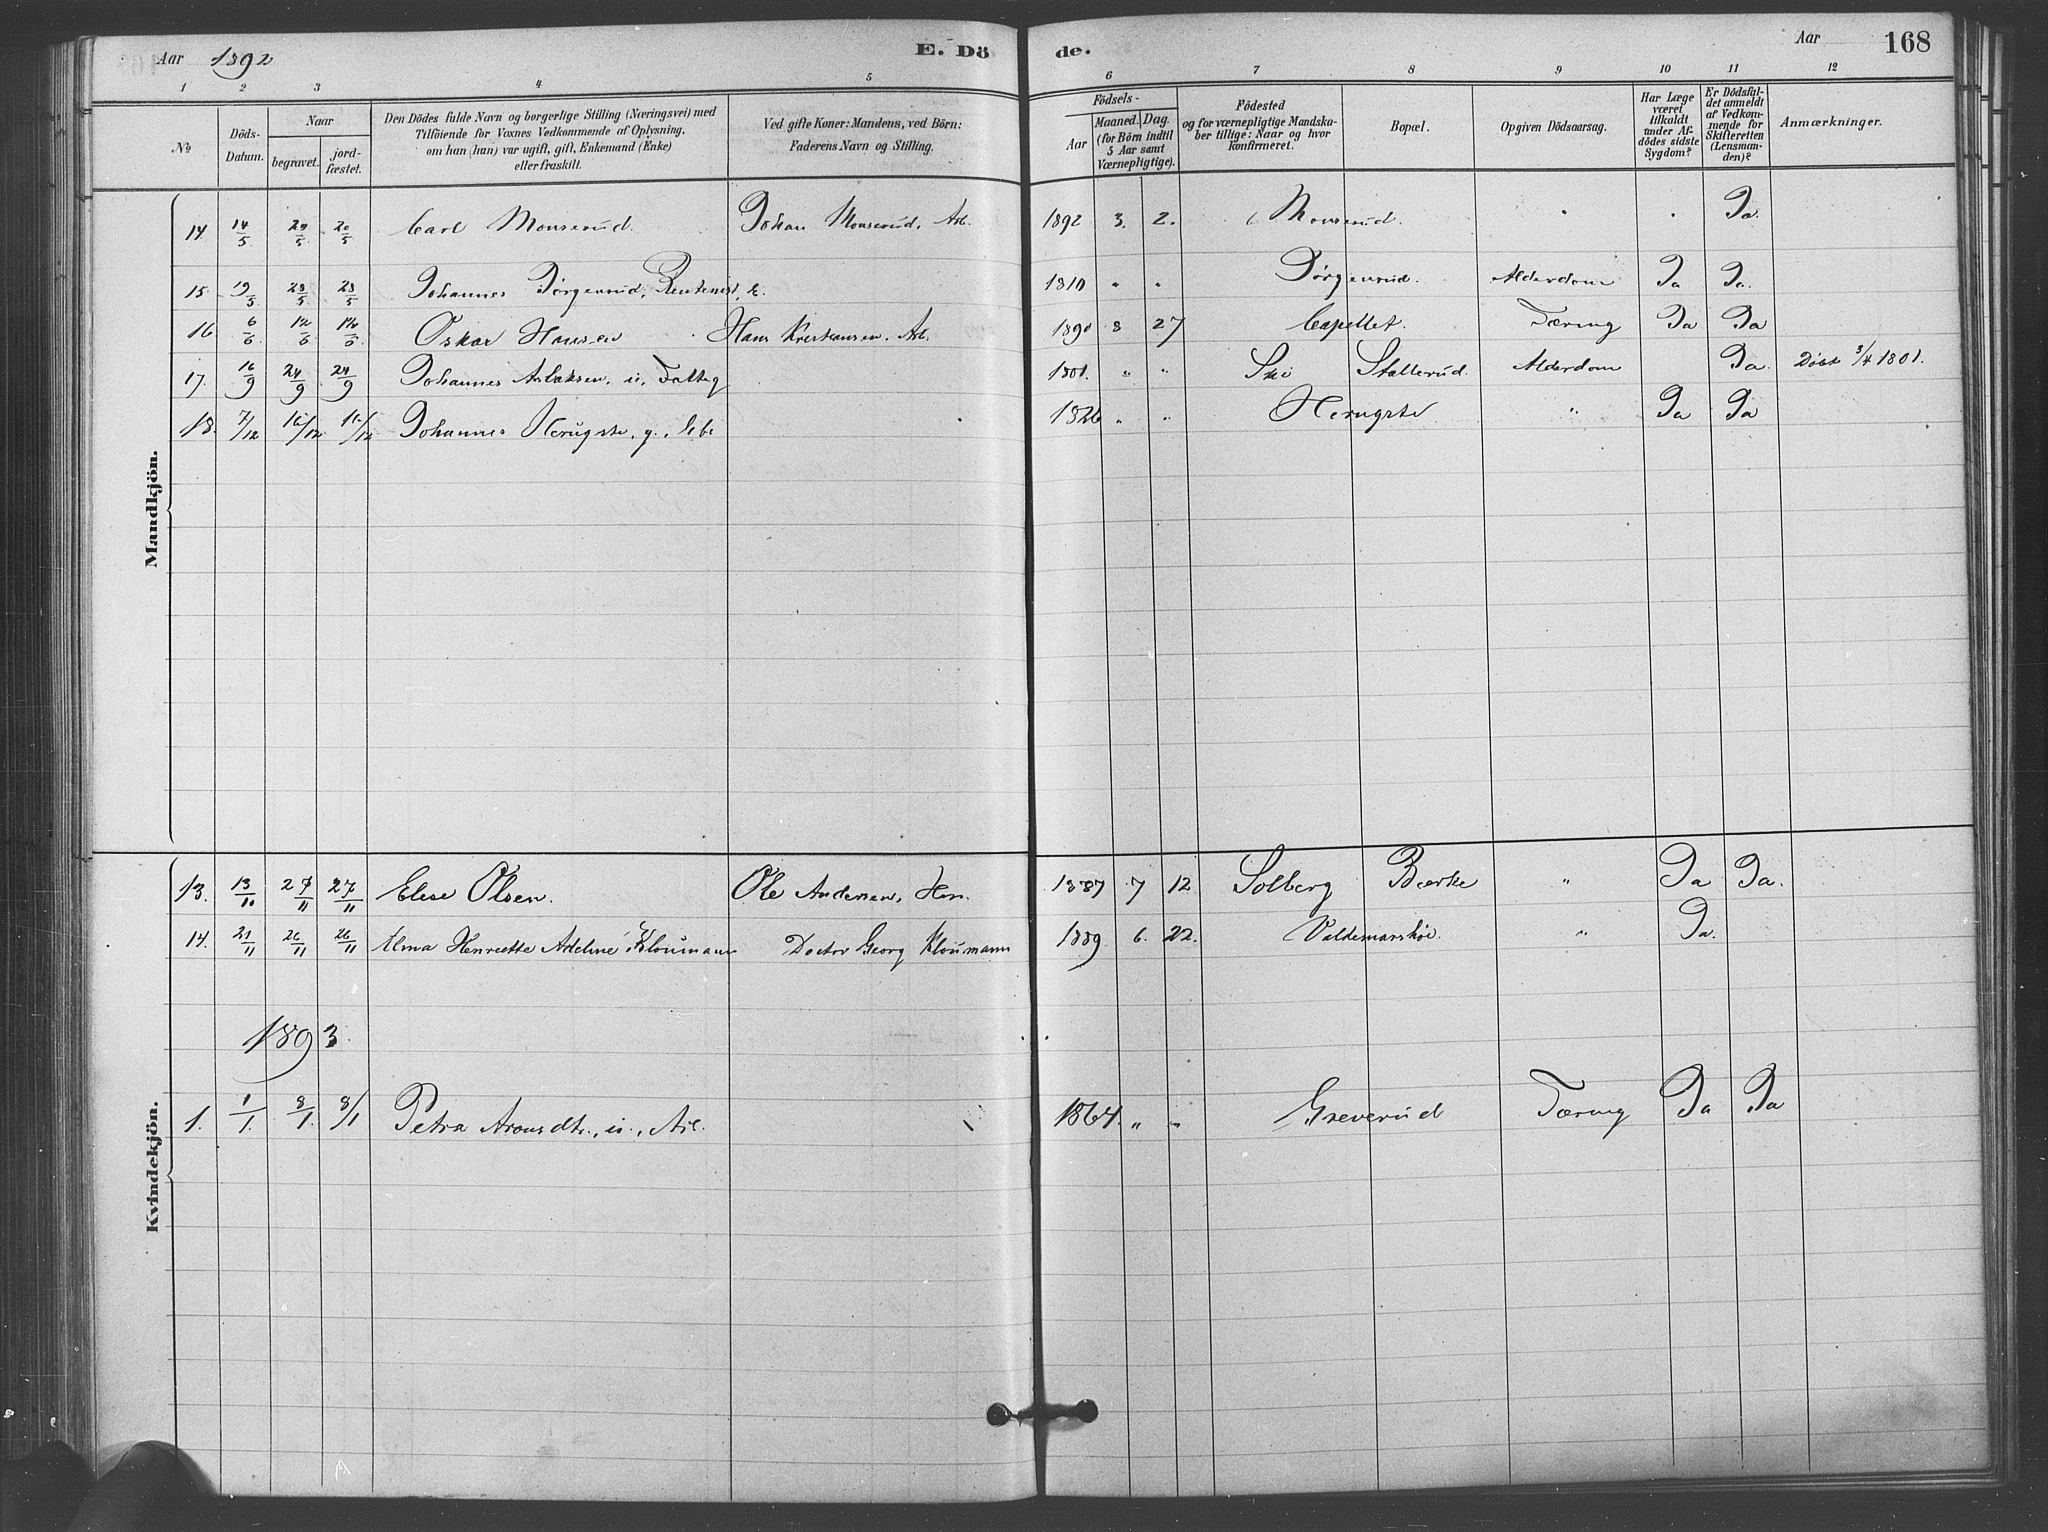 Aar 1892 E. Dö de. Aar 168
1 2 3 4 5 6 7 8 9 10 11 12
No
Döds-Datum.
Naar
begravet.
jord-fæstet.
Den Dödes fulde Navn og borgerlige Stilling (Næringsvei) med
Tilföiende for Voxnes Vedkommende af Oplysning,
om han (hun) var ugift, gift, Enkemand (Enke)
eller fraskilt.
Ved gifte Koner: Mandens, ved Börn:
Faderens Navn og Stilling.
Födsels-
Aar
Maaned. Dag.
(for Börn indtil
5 Aar samt
Værnepligtige).
Födested
og for værnepligtige Mandska-
ber tillige: Naar og hvor
konfirmeret.
Bopæl.
Opgiven Dödsaarsag.
Har Læge
været
tilkaldt
under Af-
dödes sidste
Sygdom?
Er Dödsfal-
det anmeldt
af Vedkom-
mende for
Skifteretten
(Lensman-
den)?
Anmærkninger.
Mandkjön.
14. 14/5 20/5 20/5 Carl Monserud. Johan Monserud, Arb. 1892 3. 2. Monserud. " " Ja.
15. 19/5 28/5 28/5 Johannes Jörgensrud, Rentenist, E. 1810 " " Jörgenrud. Alderdom Ja Ja.
16. 6/6 12/6 12/6 Oskar Hansen Hans Kristiansen. Arb. 1890 8 27 Capellet. Tæring Ja Ja
17. 16/9 24/9 24/9 Johannes Aslaksen, u, Fattig 1801. " " Ski Stallerud. Alderdom Ja. Döbt 3/4 1801.
18. 7/12 16/12 16/12 Johannes Herugste, g., 1826 " " Herugste " Ja Ja
Kvindekjön.
13. 13/11 27/11 27/11 Elise Olsen. Ole Andersen, 1887 7 12. Solberg Bærke " Ja Ja.
14. 21/11 26/11 26/11 Alma Henriette Adeline Kloumann Doctor Georg Kloumann 1889 6. 22. Valdemarshöi. " Ja.
1893.
1. 1/1. 8/1. 8/1 Petra Arontsdtr., u., Arb. 1864. " " Greverud Tæring Ja Ja